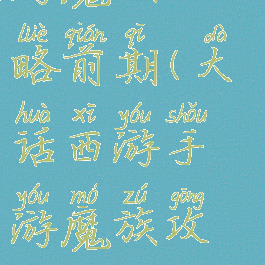 lüè qián qī dà
略前期(大
huà xī yóu shǒu
话西游手
yóu mó zú gōng
游魔族攻